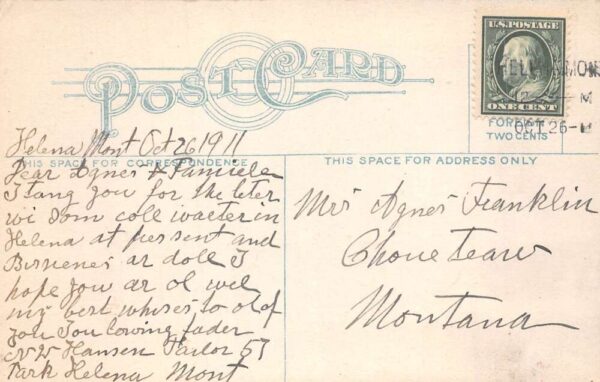 POST CARD
U.S. POSTAGE
ONE CENT
MONT
OCT 26
FOREIGN
TWO CENTS
Helena Mont Oct 26 1911
THIS SPACE FOR CORRESPONDENCE
Dear Agnes & Famiele
I tang you for the leter
wi som cole waeter in
Helena at pressent and
Bisnenes ar doll I
hope you ar ol wel
my best whises to ol of
you You loving fader
Hansen Taylor 57
Park Helena Mont
THIS SPACE FOR ADDRESS ONLY
Mrs Agnes Franklin
Choueteaw
Montana